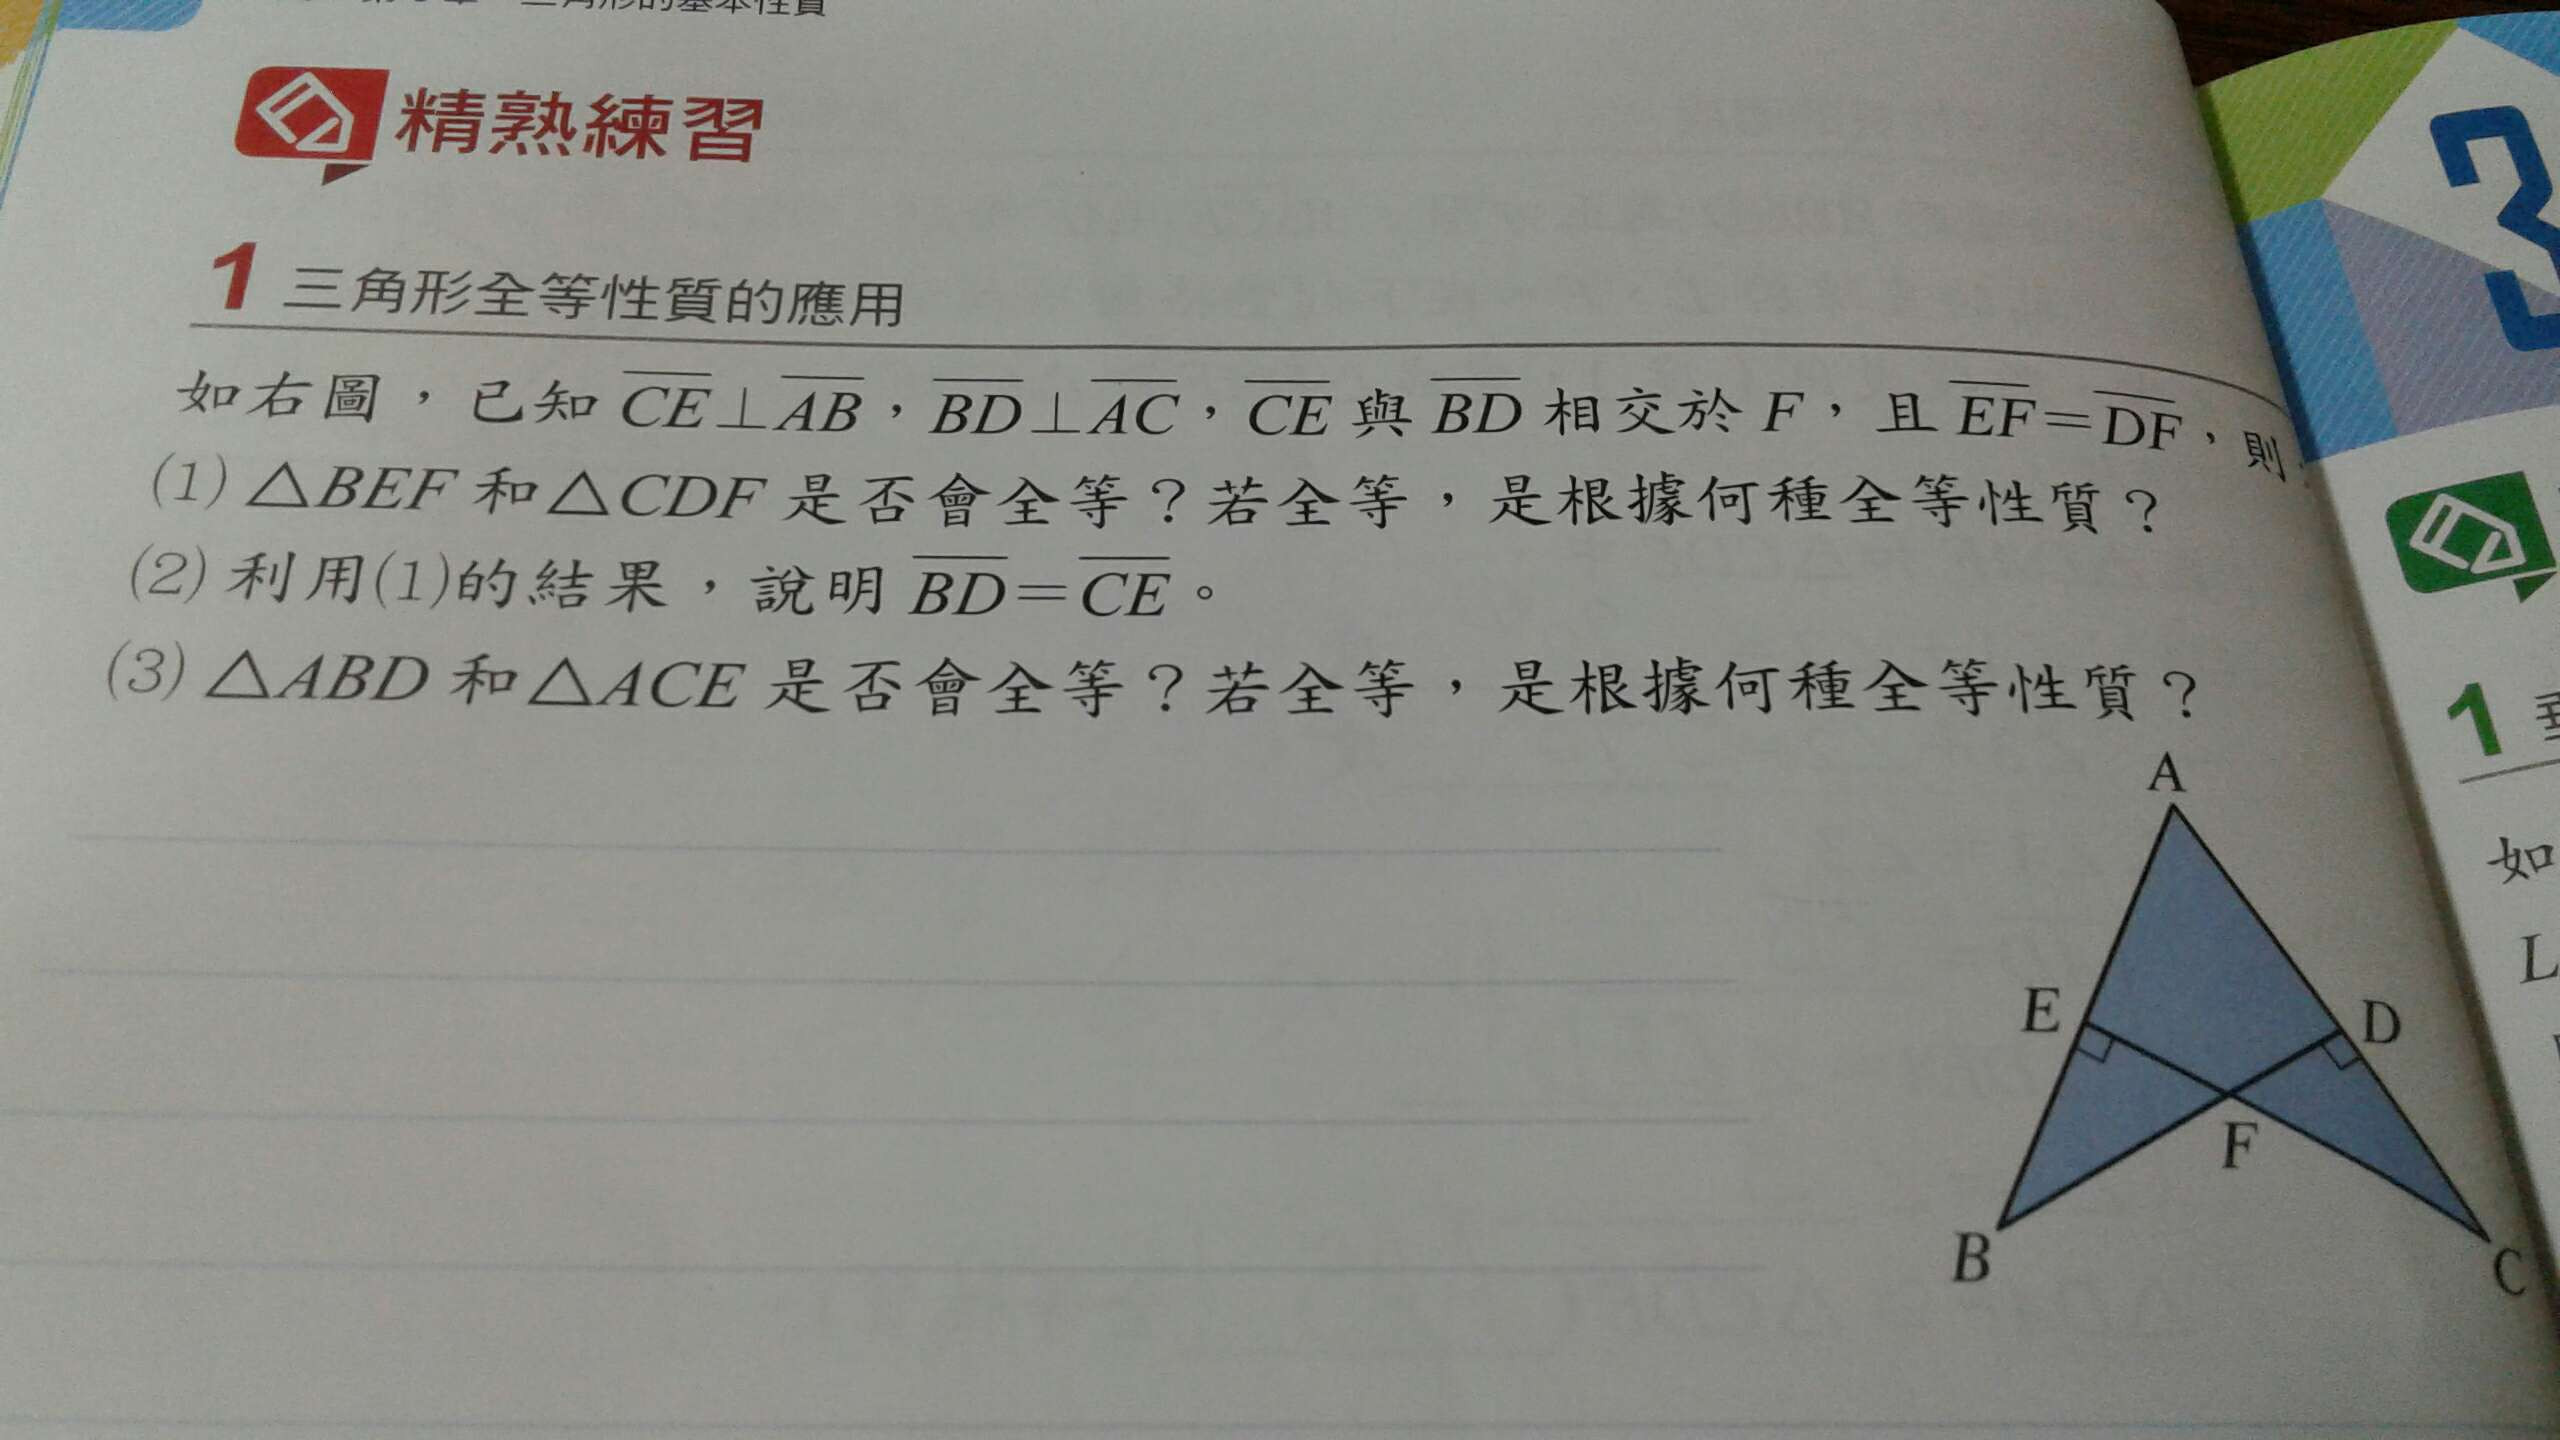 三角形的基本性質
精熟練習
1 三角形全等性質的應用
如右圖，已知 CE⊥AB，BD⊥AC，CE 與 BD 相交於 F，且 EF=DF，則
(1) △BEF 和 △CDF 是否會全等？若全等，是根據何種全等性質？
(2) 利用(1)的結果，說明 BD=CE。
(3) △ABD 和 △ACE 是否會全等？若全等，是根據何種全等性質？
A
E
D
F
B
C
3
1
如
L